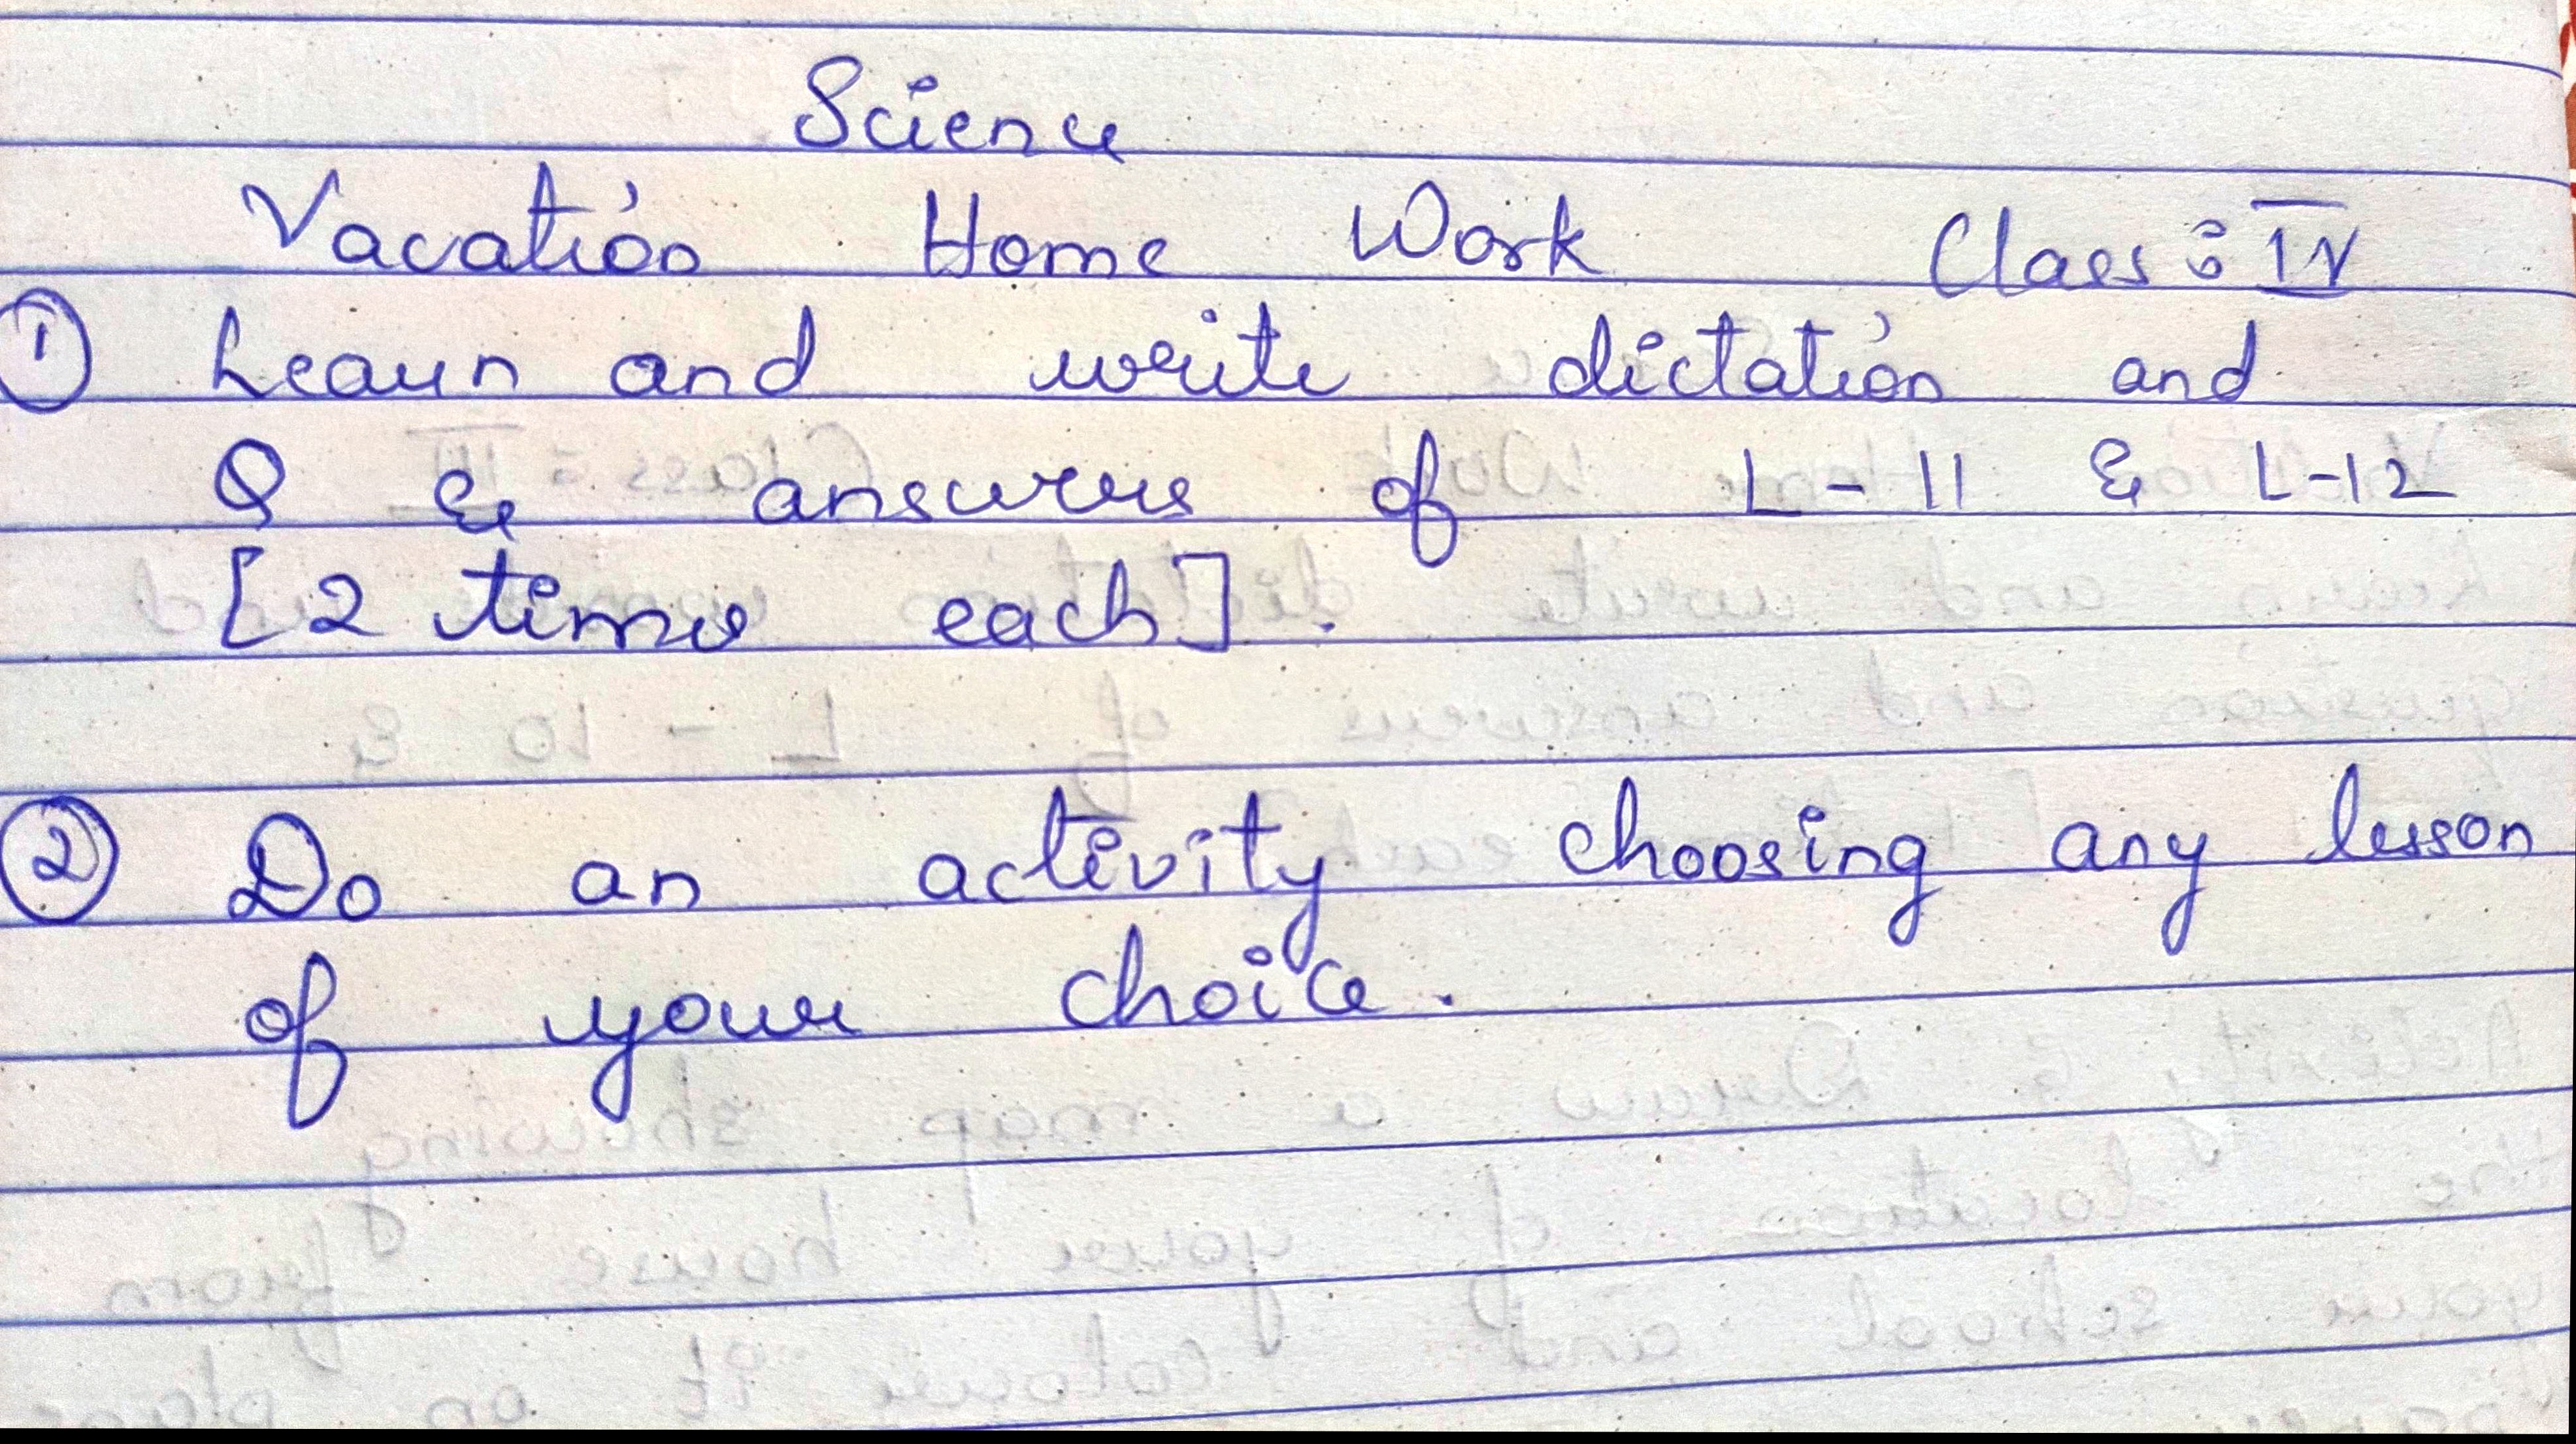 Science
Vacation Home Work Class : IV
① Learn and write dictation and
Q & answers of L - 11 & L-12
[2 times each].
② Do an activity choosing any lesson
of your choice.